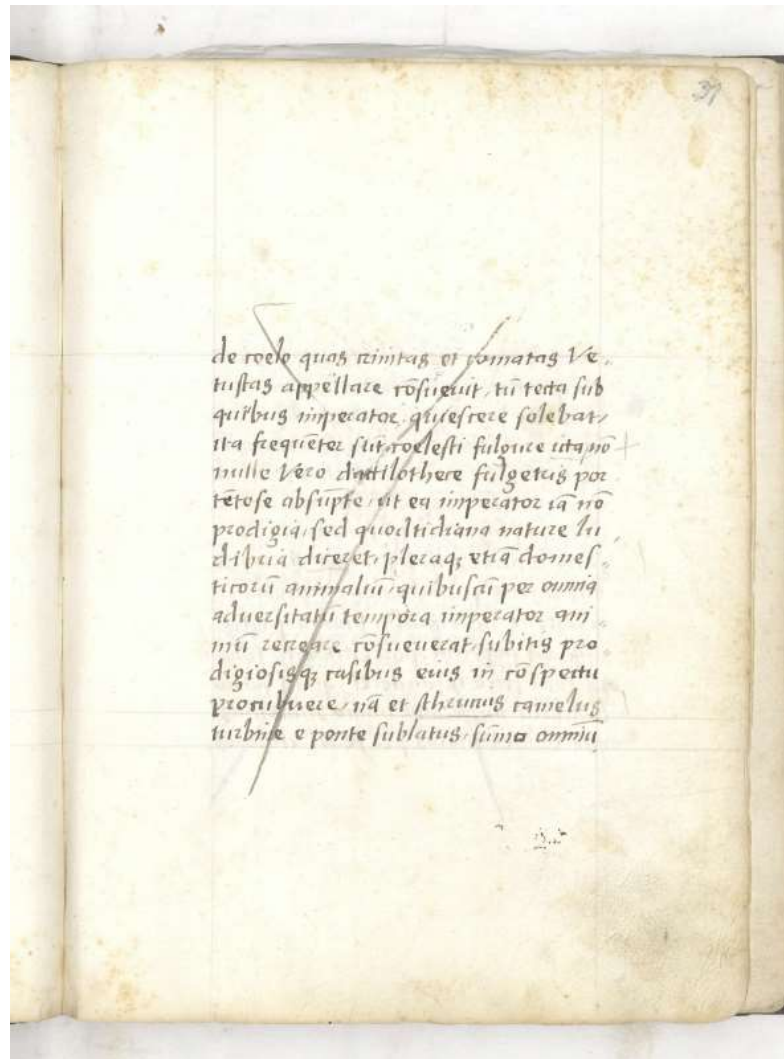 31
de coelo quas crinitas et comatas Ve-
tustas appellare cõsueuit, tũ tecta sub
quibus imperator quiescere solebat,
ita frequẽter sũt coelesti fulgure icta, nõ
nulle Vero dactilothece fulgetris por
tẽtose absũpte, ut ea imperator iã nõ
prodigia, sed quottidiana nature lu-
dibria diceret, pleraqꝫ etiã domes-
ticorũ animaliũ, quibuscũ per omnia
aduersitatũ tempora imperator ani-
mũ recreare cõsueuerat, subitis pro
digiosisqꝫ casibus eius in cõspectu
procubuere, nã et camelus
turbine e ponte sublatus, sũmo omniũ